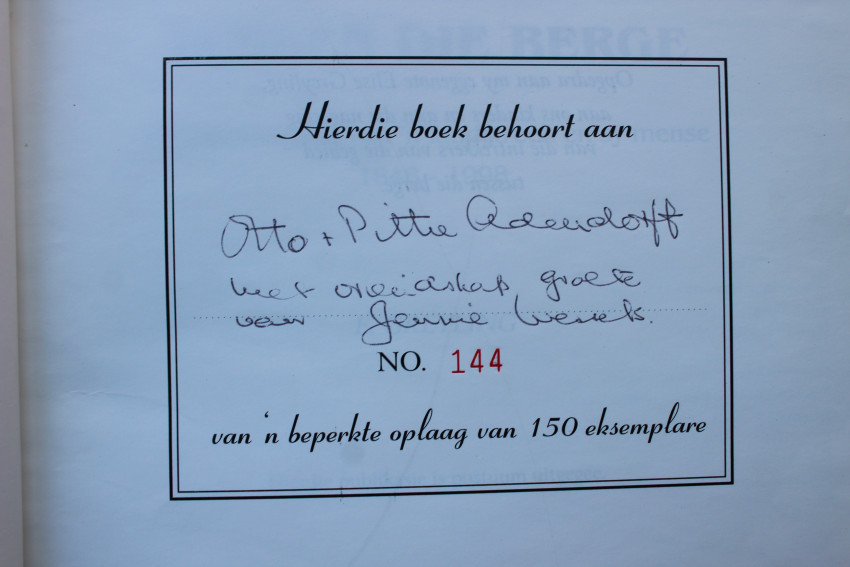 DIE BERGE
Hierdie boek behoort aan
mense
Otto + Pittie Adendorff
met vriendskap groete
van Jennie
NO. 144
van 'n beperkte oplaag van 150 eksemplare